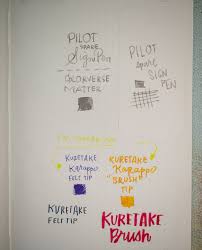 PILOT
SPARE
Sign Pen
GLORVERSE
MATTER
PILOT
spare
SIGN
PEN
KURETAKE
Karappo
FELT TIP
KURETAKE
Karappo
"BRUSH"
TIP
KURETAKE
FELT TIP
KURETAKE
Brush